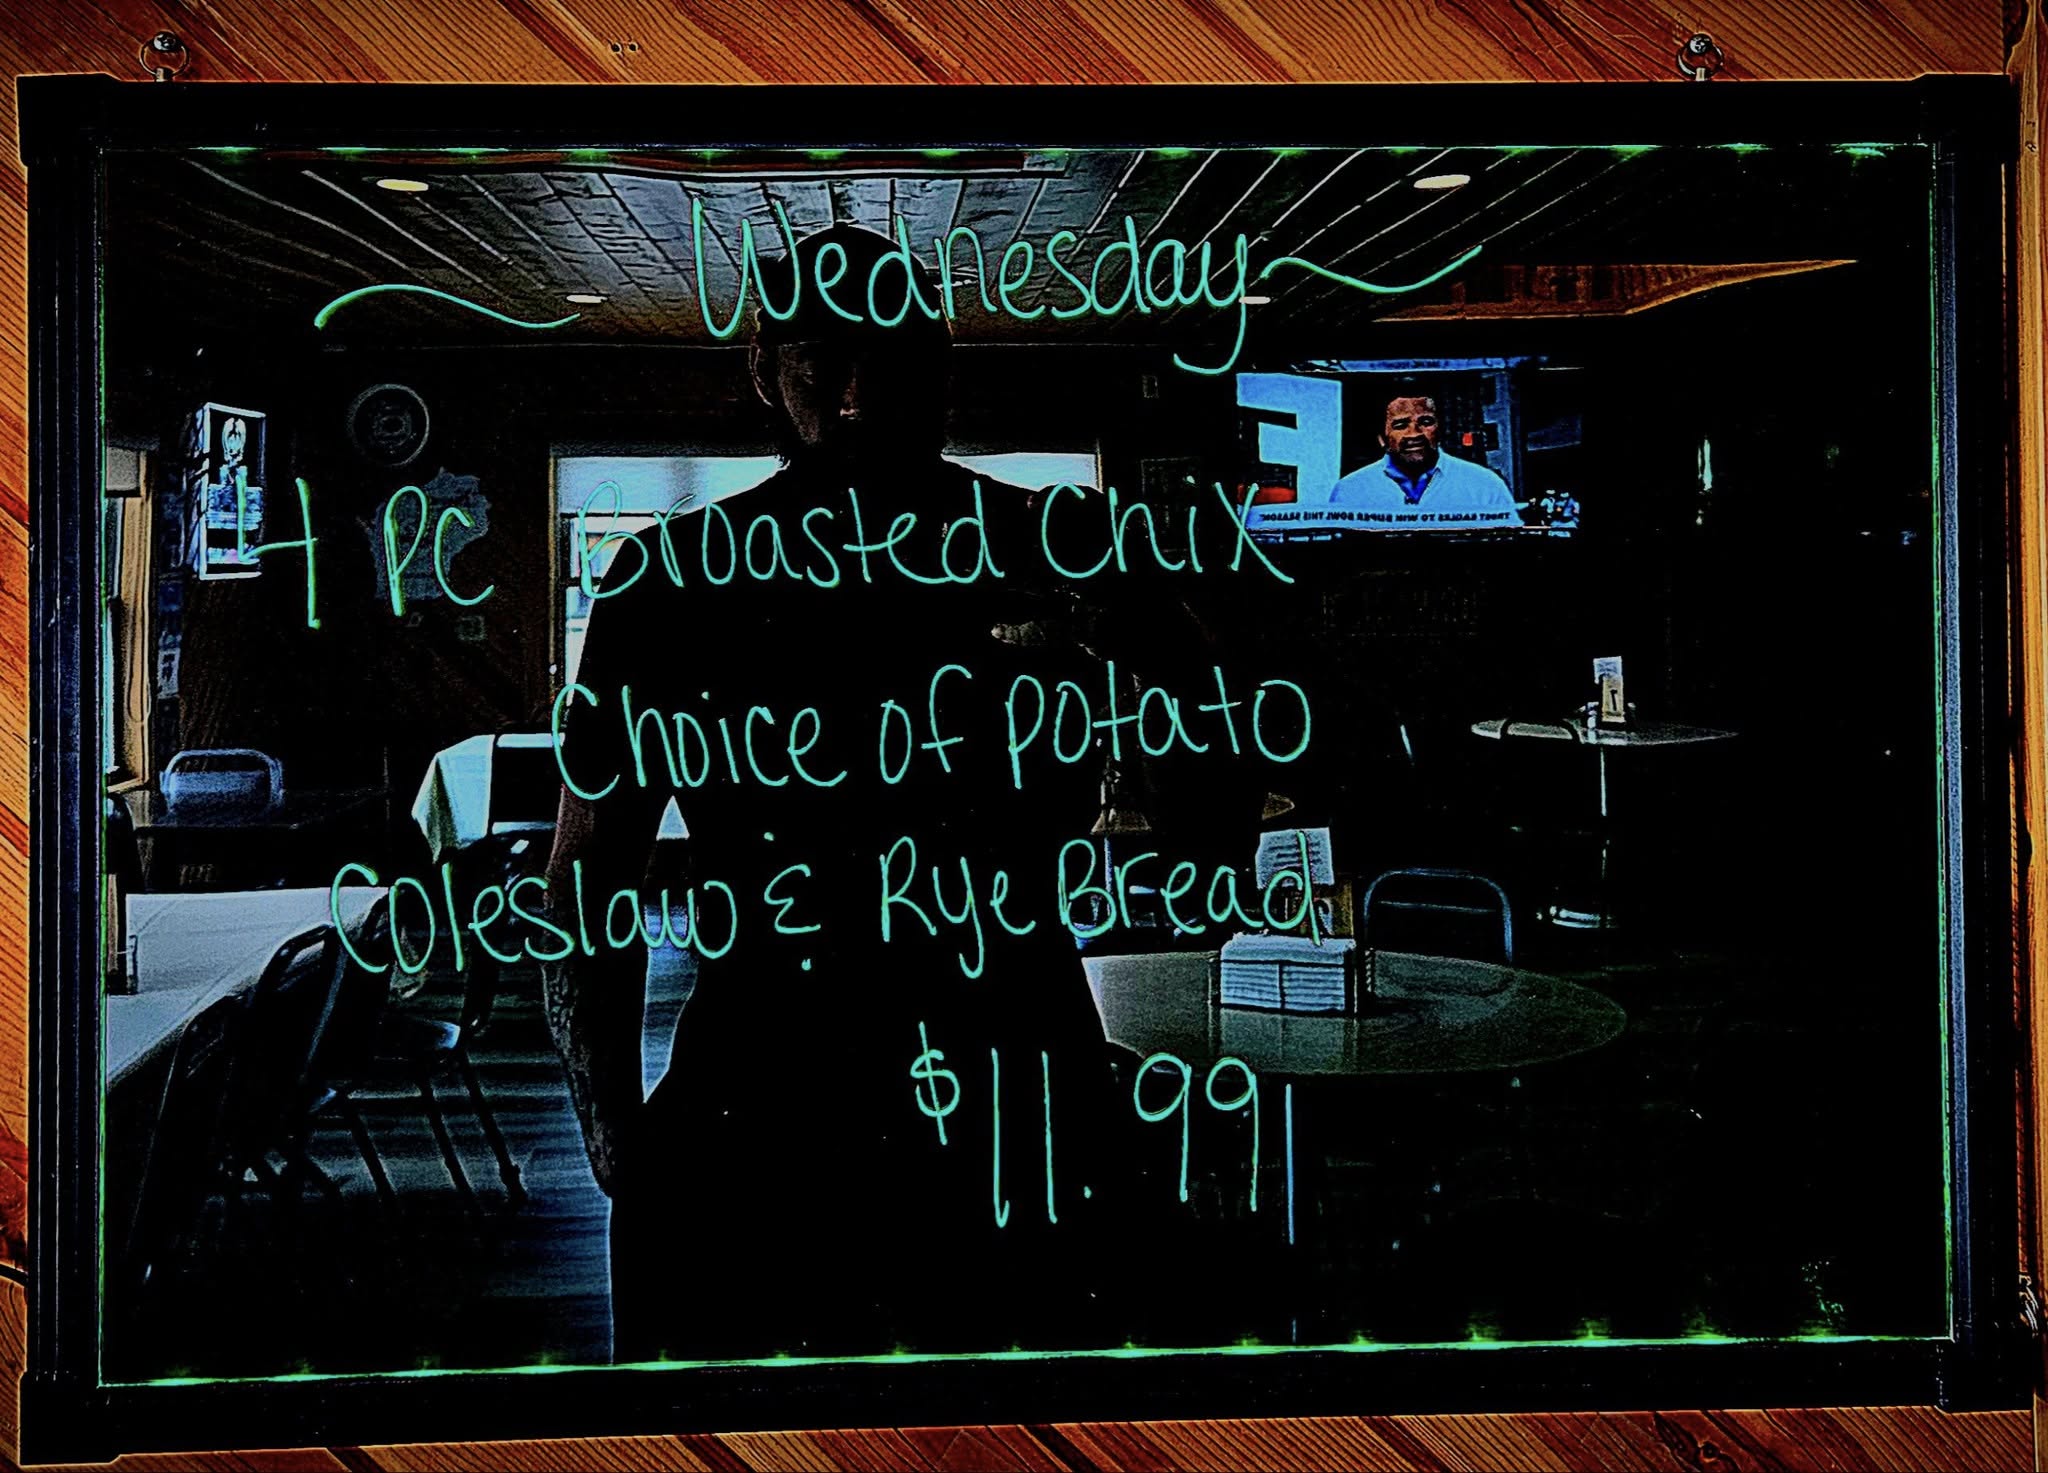 ~ Wednesday ~
4 PC Broasted Chix
Choice of potato
Coleslaw & Rye Bread
$11.99